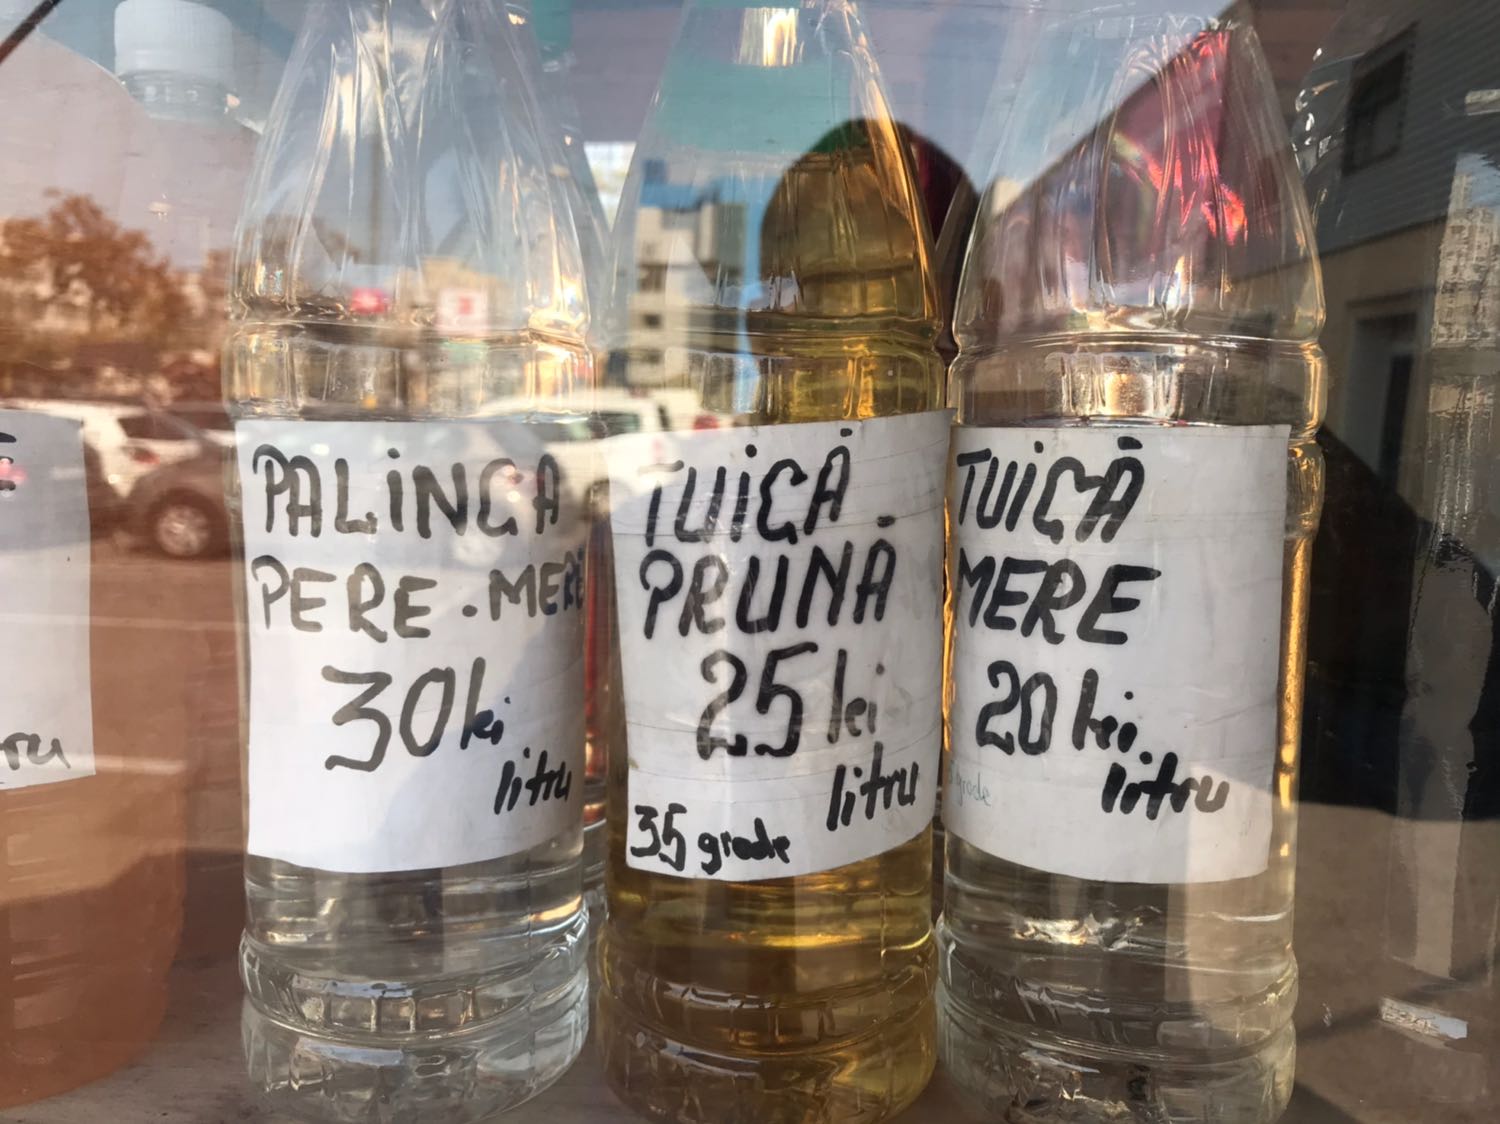 ru
PALINCA
PERE.MERE
30 lei
litru
ȚUICĂ
PRUNĂ
25 lei
litru
35 grade
ȚUICĂ
MERE
20 lei
litru
grade